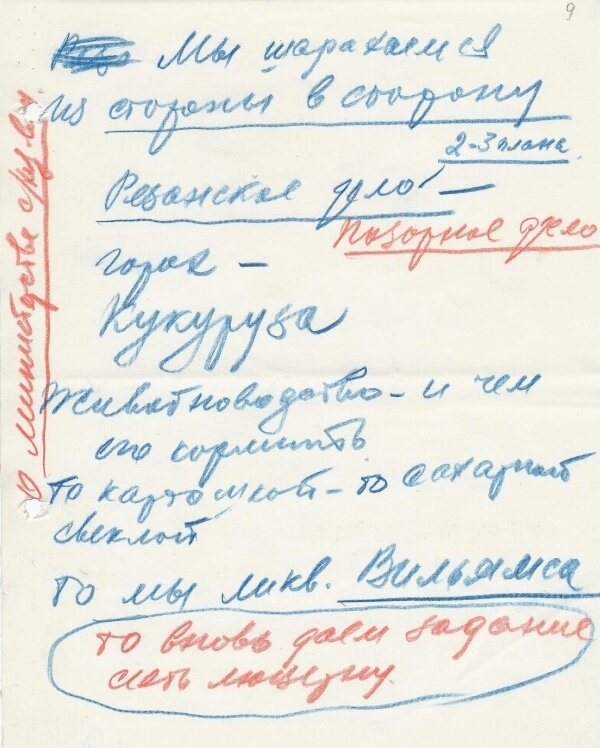 9
Мы шарахаемся
из стороны в сторону
2-3 плана
Резанское дело —
позорное дело
горох —
Кукуруза
Живатноводство - и чем
его кормить
то картошкой - то сахарной
свеклой
то мы ликв. Вильямса
то вновь даем задание
сеять люцерну.
О министерстве с/хоз